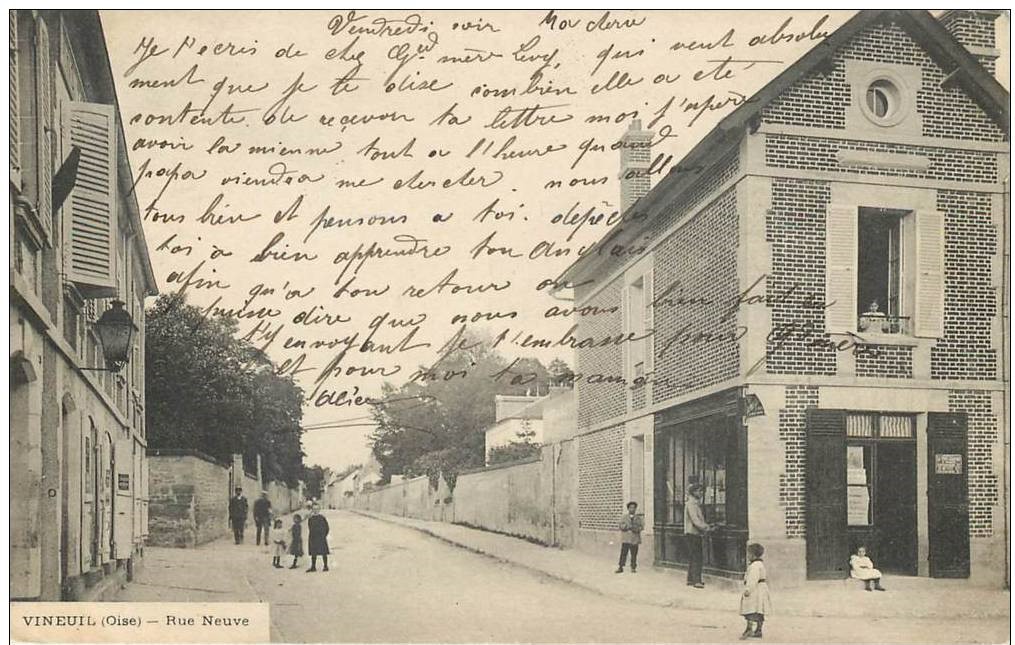 Vendredi soir Ma chère
Je t'ecris de chez Gd mère Levy, qui veut absolu
ment que je te dise combien elle a été
contente de reçevoir ta lettre moi j'espère
avoir la mienne tout a l'heure quand
papa viendra me chercher. nous allons
tous bien et pensons a toi. dépêches
toi à bien apprendre ton Anglais
afin qu'a ton retour on
puisse dire que nous avons bien fait en
t'y envoyant je t'embrasse pour
et pour moi ta maman
VINEUIL (Oise) — Rue Neuve